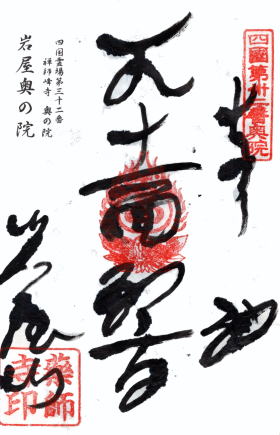 四國第卅二番奥院
奉納
十一面観音
四国霊場第三十二番
禅師峰寺 奥の院
岩屋奥の院
藥師
寺印